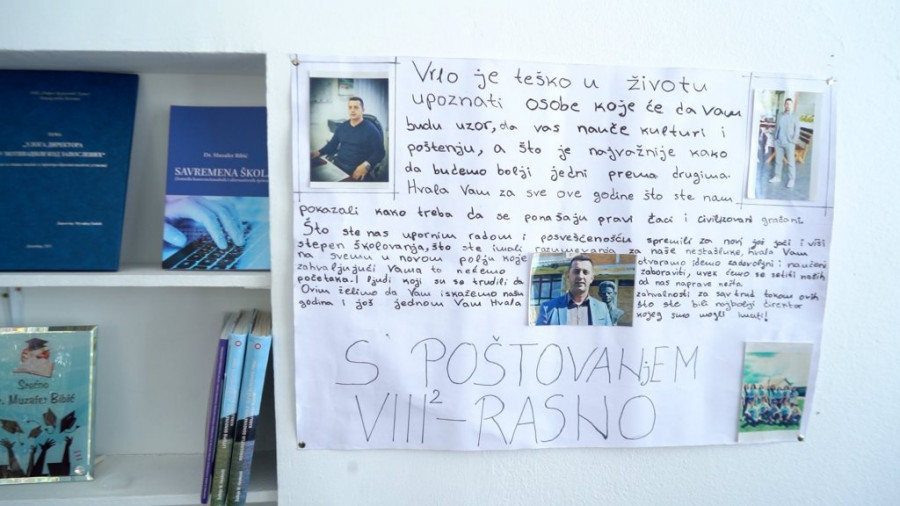 "ULOGA DIREKTORA
Dr. Muzafer Bibić
SAVREMENA ŠKOL
Srećno
Dr. Muzafer Bibić
Vrlo je teško u životu
upoznati osobe koje će da Vam
budu uzor, da vas nauče kulturi i
poštenju, a što je najvažnije kako
da budemo bolji jedni prema drugima
Hvala Vam za sve ove godine što ste nam
pokazali kako treba da se ponašaju pravi đaci i civilizovani građani.
Što ste nas upornim radom i posvećenošću spremili za novi još jači i viši
stepen školovanja, što ste imali razumevanja za naše nestašluke, Hvala Vam
na svemu u novom polju koje otvaramo idemo zadovoljni i naučeni
zahvaljujući Vama to nećemo zaboraviti, uvek ćemo se setiti naših
početaka. I ljudi koji su se trudili da od nas naprave nešto.
Ovim želimo da Vam iskažemo našu zahvalnosti za sav trud tokom ovih
godina i još jednom Vam Hvala što ste bili najbolji direktor
kojeg smo mogli imati!
S POŠTOVANjEM
VIII2-RASNO